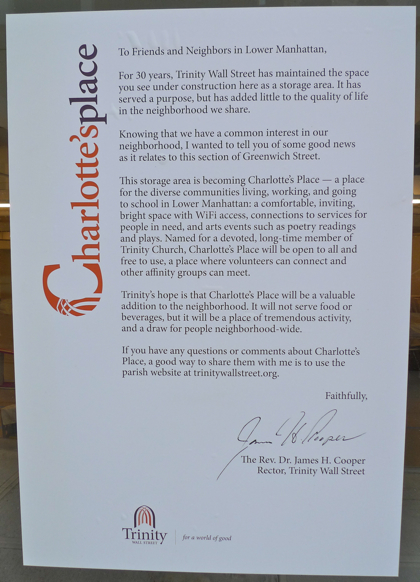 Charlotte's place
To Friends and Neighbors in Lower Manhattan,
For 30 years, Trinity Wall Street has maintained the space
you see under construction here as a storage area. It has
served a purpose, but has added little to the quality of life
in the neighborhood we share.
Knowing that we have a common interest in our
neighborhood, I wanted to tell you of some good news
as it relates to this section of Greenwich Street.
This storage area is becoming Charlotte's Place — a place
for the diverse communities living, working, and going
to school in Lower Manhattan: a comfortable, inviting,
bright space with WiFi access, connections to services for
people in need, and arts events such as poetry readings
and plays. Named for a devoted, long-time member of
Trinity Church, Charlotte's Place will be open to all and
free to use, a place where volunteers can connect and
other affinity groups can meet.
Trinity's hope is that Charlotte's Place will be a valuable
addition to the neighborhood. It will not serve food or
beverages, but it will be a place of tremendous activity,
and a draw for people neighborhood-wide.
If you have any questions or comments about Charlotte's
Place, a good way to share them with me is to use the
parish website at trinitywallstreet.org.
Faithfully,
James H. Cooper
The Rev. Dr. James H. Cooper
Rector, Trinity Wall Street
Trinity
WALL STREET
for a world of good